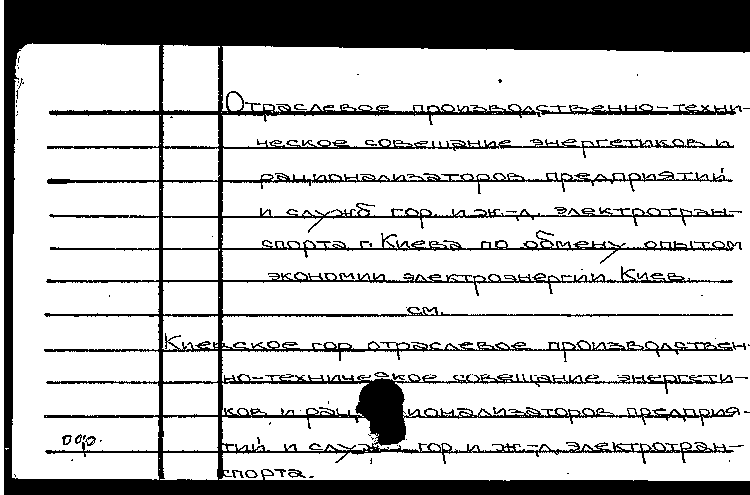 Отраслевое производственно-техни-
ческое совещание энергетиков и
рационализаторов предприятий
и служб гор. и ж-д. электротран-
спорта г. Киева по обмену опытом
экономии электроэнергии. Киев.
см.
Киевское гор. отраслевое производствен-
но-техническое совещание энергети-
ков и рационализаторов предприя-
тий и служб гор. и ж-д. электротран-
спорта.